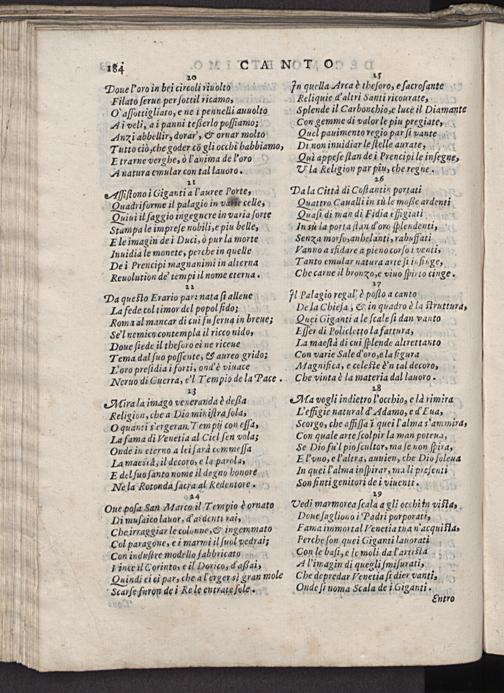 184
CANTO
20
Doue l'oro in bei circoli riuolto
Filato serue per sottil ricamo,
O' assottigliato, e ne i pennelli auuolto
A i veli, a i panni tesserlo possiamo;
Anzi abbellir, dorar', & ornar molto
Tutto ciò, che goder cō gli occhi habbiamo,
E trarne verghe, ò l'anima de l'oro
A natura emular con tal lauoro.
21
Assistono i Giganti a l'auree Porte,
Quadriforme il palagio in varie celle,
Quiui il saggio ingegnere in varia sorte
Stampa le imprese nobili, e piu belle,
E le imagin de i Duci, ò pur la morte
Inuidia le monete, perche in quelle
De i Prencipi magnanimi in alterna
Reuolution de' tempi il nome eterna.
22
Da questo Erario par nata si alleue
La fede col timor del popol fido;
Roma al mancar di cui fu serua in breue;
Se'l nemico contempla il ricco nido,
Doue siede il thesoro ei ne riceue
Tema dal suo possente, & aureo grido;
L'oro presidia i forti, ond'è viuace
Neruo di Guerra, e'l Tempio de la Pace.
23
Mira la imago veneranda è dessa
Religion, che a Dio ministra sola,
O quanti s'ergeran Tempij con essa,
La fama di Venetia al Ciel sen vola;
Onde in eterno a lei sarà commessa
La maestà, il decoro, e la parola,
E del suo santo nome il degno honore
Ne la Rotonda sacra al Redentore.
24
Oue posa San Marco il Tempio è ornato
Di musaico lauor, d'ardenti rai,
Che irraggiar le colonne, & ingemmato
Col paragone, e i marmi il suol vedrai;
Con industre modello fabbricato
Vince il Corinto, e il Dorico, d'assai,
Quindi ei ci par, che a l'erger sì gran mole
Scarse furon de i Re le entrate sole.
25
In quella Arca è thesoro, e sacrosante
Reliquie d'altri Santi ricourate,
Splende il Carbonchio, e luce il Diamante
Con gemme di valor le piu pregiate,
Quel pauimento regio par si vante
Di non inuidiar le stelle aurate,
Qui appese stan de i Prencipi le insegne,
V la Religion par piu, che regne.
26
Da la Città di Costantin portati
Quattro Caualli in sù le mosse ardenti
Quasi di man di Fidia effigiati
In sù la porta stan d'oro splendenti,
Senza morso, anhelanti, rabuffati
Vanno a sfidare a pieno corso i venti,
Tanto emular natura arte si infinge,
Che carne il bronzo, e viuo spirto cinge.
27
Il Palagio regal' è posto a canto
De la Chiesa, & in quadro è la struttura,
Quei Giganti a le scale si dan vanto
Esser di Policletto la fattura,
La maestà di cui splende altrettanto
Con varie Sale d'oro, e la figura
Magnifica, e celeste è'n tal decoro,
Che vinta è la materia dal lauoro.
28
Ma vogli indietro l'occhio, e là rimira
L'effigie natural d'Adamo, e d'Eua,
Scorgo, che affissa ī quei l'alma s'ammira,
Con quale arte scolpir la man poteua,
Se Dio fu'l pio scultor, ma se non spira,
E l'vno, e l'altra, auuien, che Dio soleua
In quei l'alma inspirar, ma li presenti
Son finti genitori de i viuenti.
29
Vedi marmorea scala a gli occhi in vista,
Doue sagliono i Padri porporati,
Fama immortal Venetia tua n'acquista,
Perche son quei Giganti lauorati
Con le basi, e le moli da l'artista
A l'imagin di quegli smisurati,
Che depredar Venetia si dier vanti,
Onde si noma Scala de i Giganti.
Entro